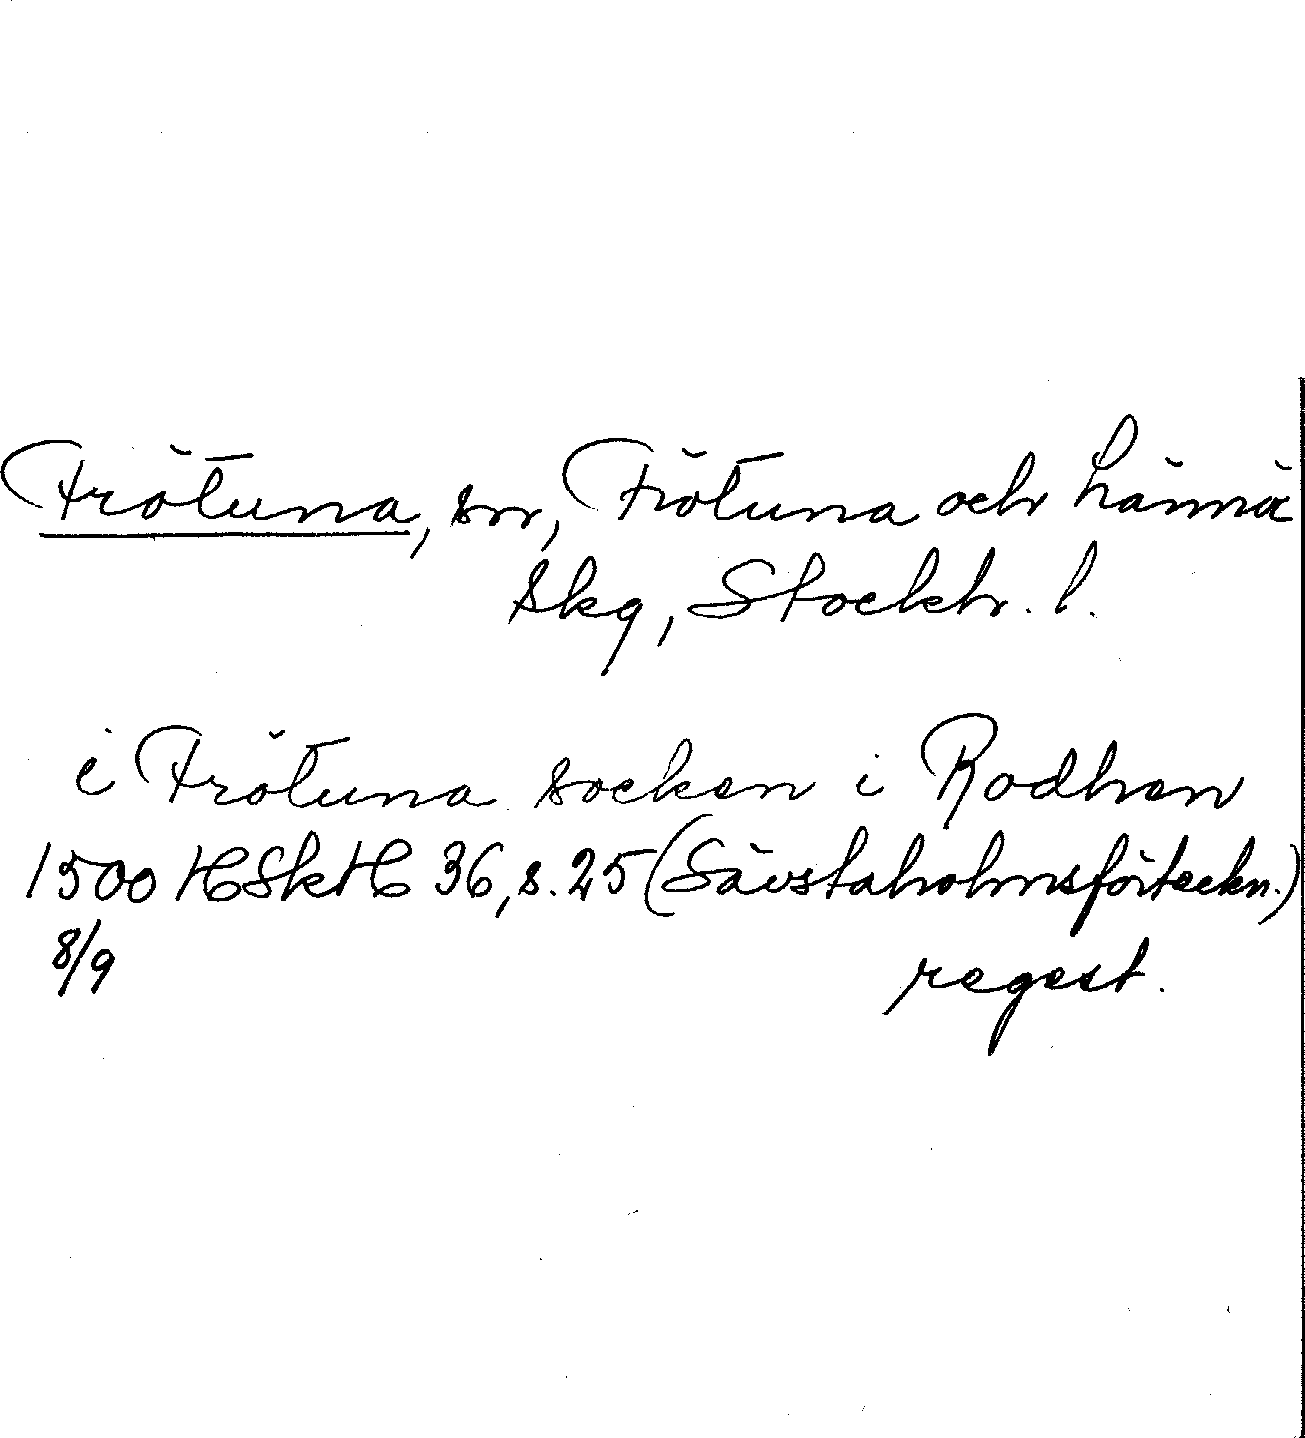 Frötuna, sn, Frötuna och Länna
skg, Stockh. l.
i Frötuna socken i Rodhen
1500 HSkH 36, s. 25 (Sävstaholmsförteckn.)
8/9 regest.